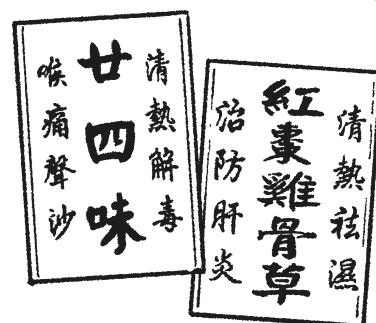 清熱解毒
廿四味
喉痛聲沙
清熱祛濕
紅棗雞骨草
治防肝炎